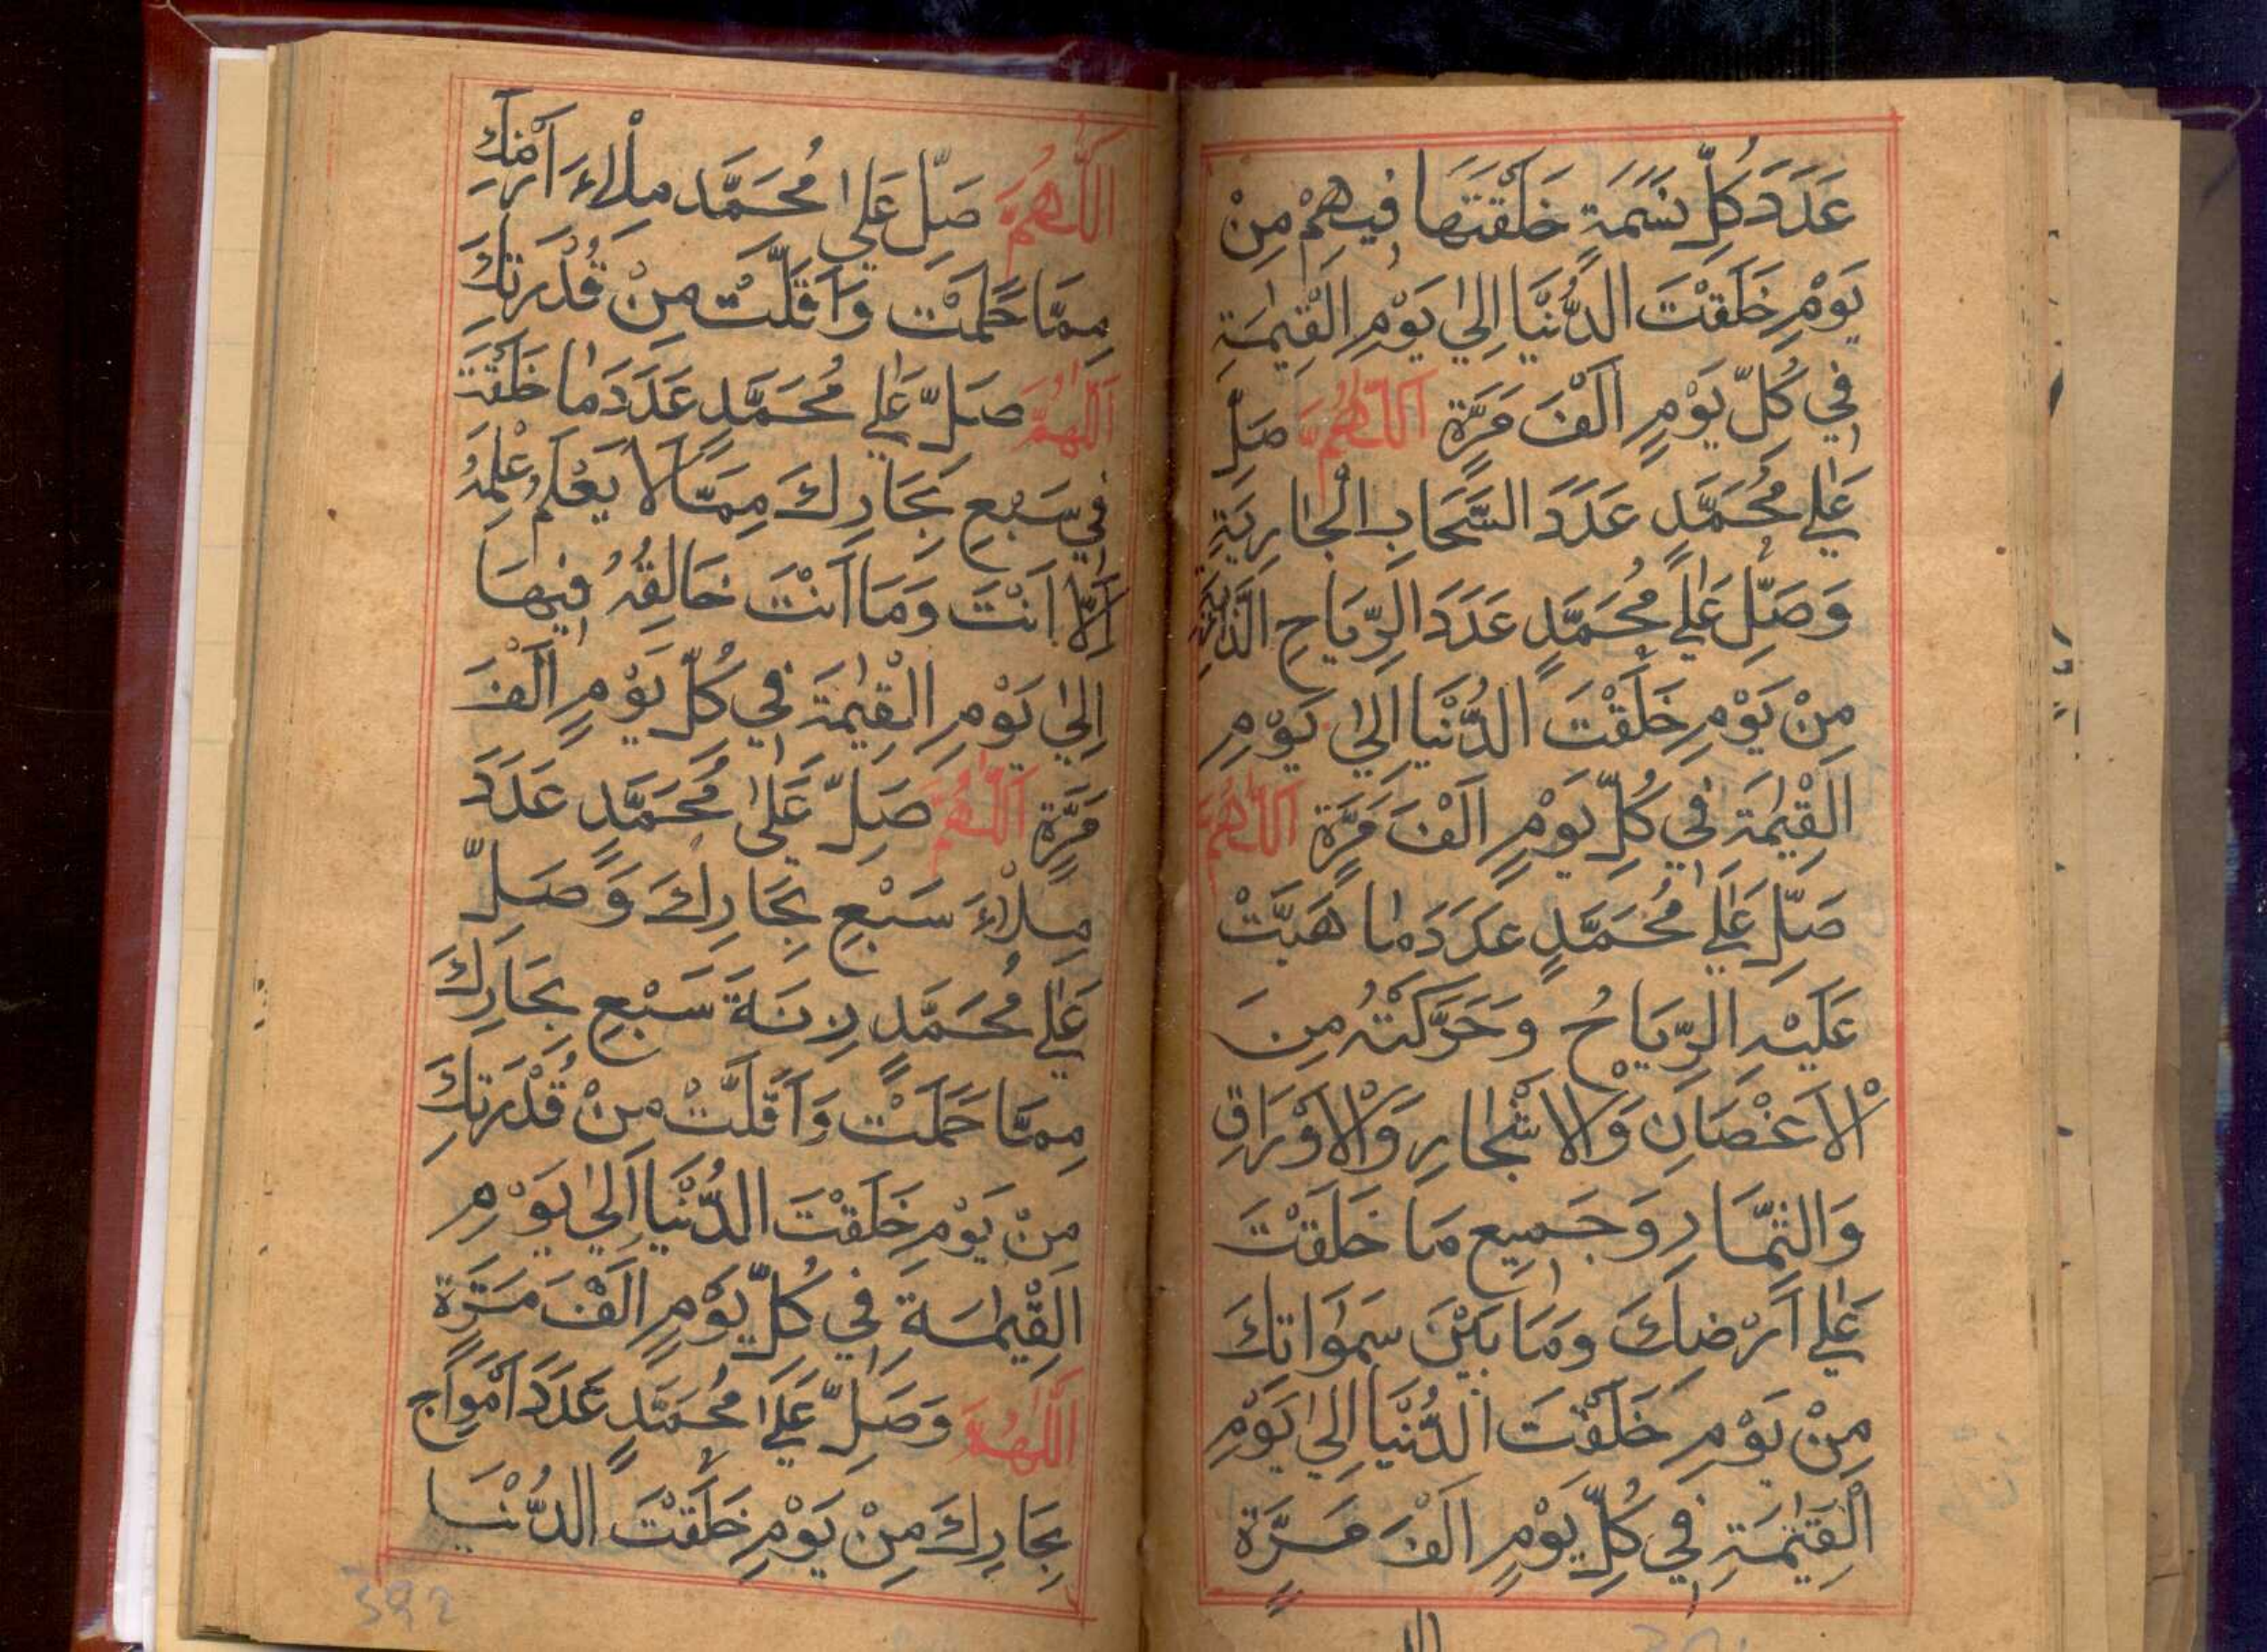 عَدَدَ كُلِّ نَسَمَةٍ خَلَقْتَهَا فِيهِمْ مِنْ
يَوْمِ خَلَقْتَ الدُّنْيَا اِلَىٰ يَوْمِ الْقِيٰمَةِ
فِي كُلِّ يَوْمٍ اَلْفَ مَرَّةٍ اَللّٰهُمَّ صَلِّ
عَلٰي مُحَمَّدٍ عَدَدَ السَّحَابِ الْجَارِيَةِ
وَصَلِّ عَلٰي مُحَمَّدٍ عَدَدَ الرِّيَاحِ الذَّارِيَةِ
مِنْ يَوْمِ خَلَقْتَ الدُّنْيَا اِلٰي يَوْمِ
الْقِيٰمَةِ فِي كُلِّ يَوْمٍ اَلْفَ مَرَّةٍ اَللّٰهُمَّ
صَلِّ عَلٰي مُحَمَّدٍ عَدَدَ مَا هَبَّتْ
عَلَيْهِ الرِّيَاحُ وَحَرَّكَتْهُ مِنَ
الْاَغْصَانِ وَالْاَشْجَارِ وَالْاَوْرَاقِ
وَالثِّمَارِ وَجَمِيعِ مَا خَلَقْتَ
عَلٰي اَرْضِكَ وَمَا بَيْنَ سَمٰوَاتِكَ
مِنْ يَوْمِ خَلَقْتَ الدُّنْيَا اِلٰي يَوْمِ
الْقِيٰمَةِ فِي كُلِّ يَوْمٍ اَلْفَ مَرَّةٍ
اَللّٰهُمَّ صَلِّ عَلٰي مُحَمَّدٍ مِلْاءَ اَرْضِكَ
مِمَّا حَمَلَتْ وَاَقَلَّتْ مِنْ قُدْرَتِكَ
اَللّٰهُمَّ صَلِّ عَلٰي مُحَمَّدٍ عَدَدَ مَا خَلَقْتَ
فِي سَبْعِ بِحَارِكَ مِمَّا لَا يَعْلَمُ عِلْمَهُ
اِلَّا اَنْتَ وَمَا اَنْتَ خَالِقُهُ فِيهَا
اِلٰي يَوْمِ الْقِيٰمَةِ فِي كُلِّ يَوْمٍ اَلْفَ
مَرَّةٍ اَللّٰهُمَّ صَلِّ عَلٰي مُحَمَّدٍ عَدَدَ
مِلْاءَ سَبْعِ بِحَارِكَ وَصَلِّ
عَلٰي مُحَمَّدٍ زِنَةَ سَبْعِ بِحَارِكَ
مِمَّا حَمَلَتْ وَاَقَلَّتْ مِنْ قُدْرَتِكَ
مِنْ يَوْمِ خَلَقْتَ الدُّنْيَا اِلٰي يَوْمِ
الْقِيٰمَةِ فِي كُلِّ يَوْمٍ اَلْفَ مَرَّةٍ
اَللّٰهُمَّ وَصَلِّ عَلٰي مُحَمَّدٍ عَدَدَ اَمْوَاجِ
بِحَارِكَ مِنْ يَوْمِ خَلَقْتَ الدُّنْيَا
392